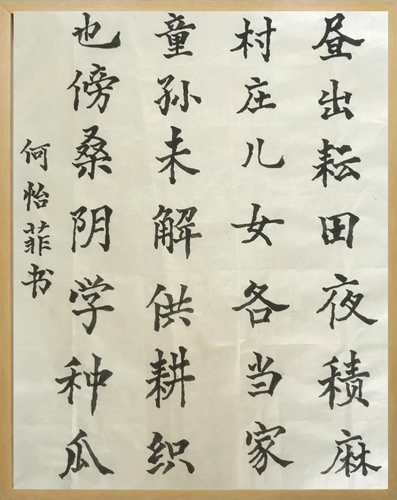 昼出耘田夜積麻
村庄儿女各当家
童孙未解供耕织
也傍桑阴学种瓜
何怡菲书